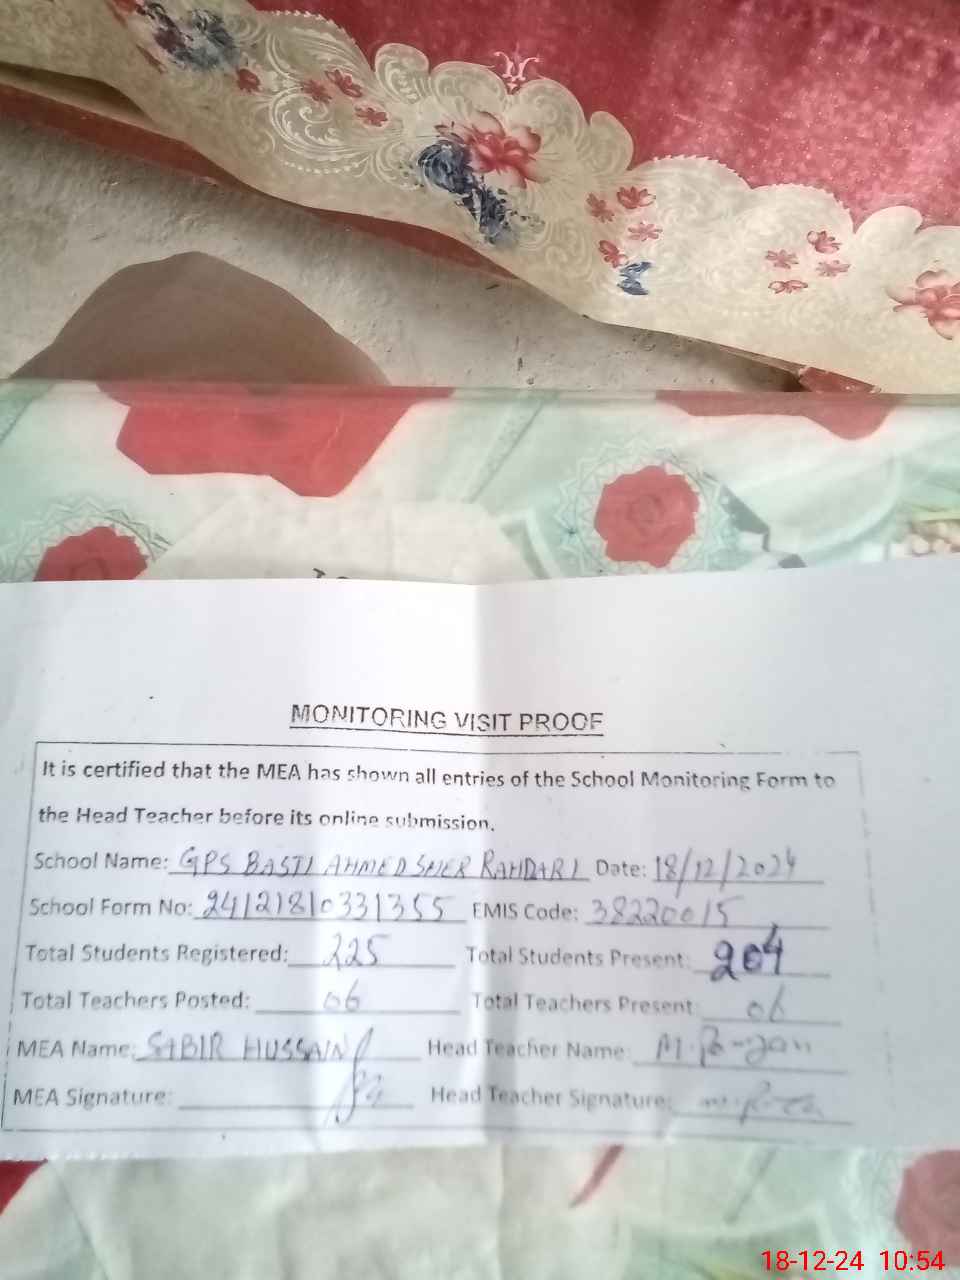 MONITORING VISIT PROOF
It is certified that the MEA has shown all entries of the School Monitoring Form to
the Head Teacher before its online submission.
School Name: GPS BASTI AHMED SHER RAHDARI Date: 18/12/2024
School Form No: 24121810331355 EMIS Code: 38220015
Total Students Registered: 225 Total Students Present: 204
Total Teachers Posted: 06 Total Teachers Present: 06
MEA Name: SABIR HUSSAIN Head Teacher Name: M.
MEA Signature: Head Teacher Signature:
18-12-24 10:54